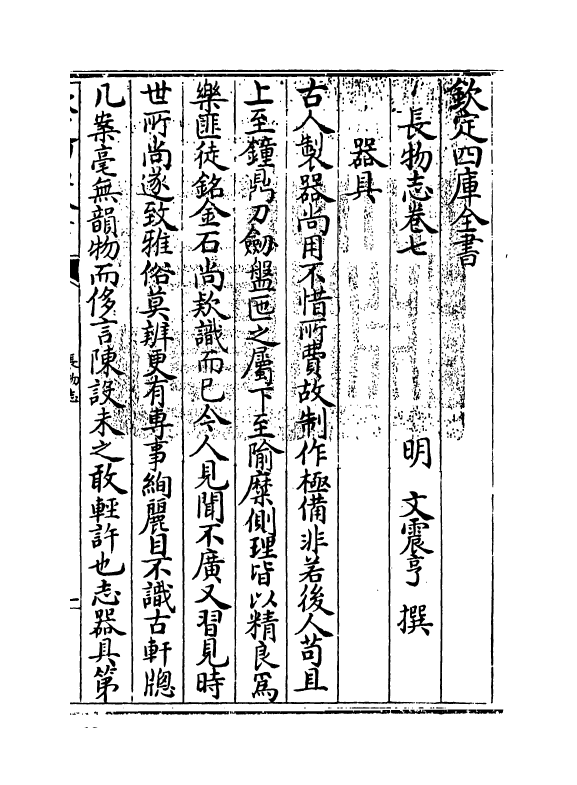 欽定四庫全書
長物志卷七
明 文震亨 撰
器具
古人製器尚用不惜所費故制作極備非若後人苟且
上至鐘鼎刀劒盤匜之屬下至隃糜側理皆以精良爲
樂匪徒銘金石尚欵識而已今人見聞不廣又習見時
世所尚遂致雅俗莫辨更有專事絢麗目不識古軒牕
几案毫無韻物而侈言陳設未之敢輕許也志器具第
長物志